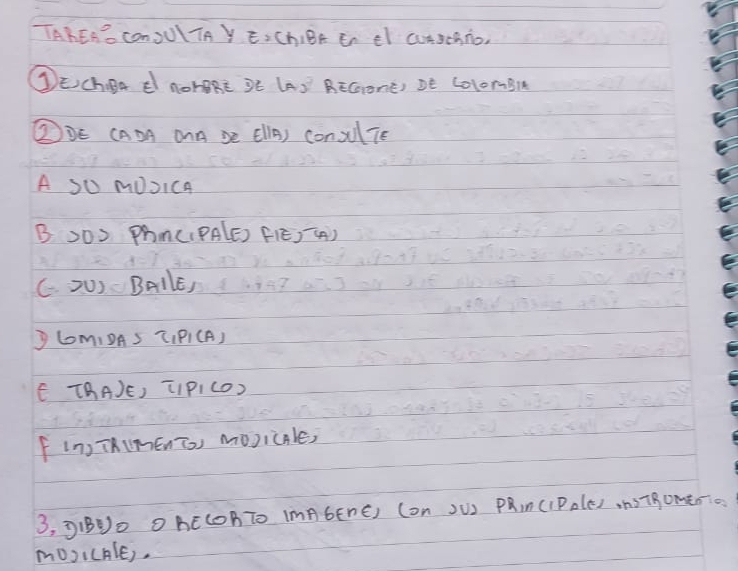 TAREA: consulTA Y EschiBA En el cuaderno.
① EschiBA El nomBRE DE LAS REGiones DE colomBIA
② DE CADA unA DE EllAS consulTE
A SU MUSICA
B SUS PRinciPALES FIESTAS
C SUS BAILES
D COMIDAS TIPICAS
E TRAJES TIPICOS
F InsTRUMEnTOS MUSICALES
3, DIBUJO O RECORTO IMAGENES Con SUS PRinciPALES insTRUMENTOS
MUSICALES.